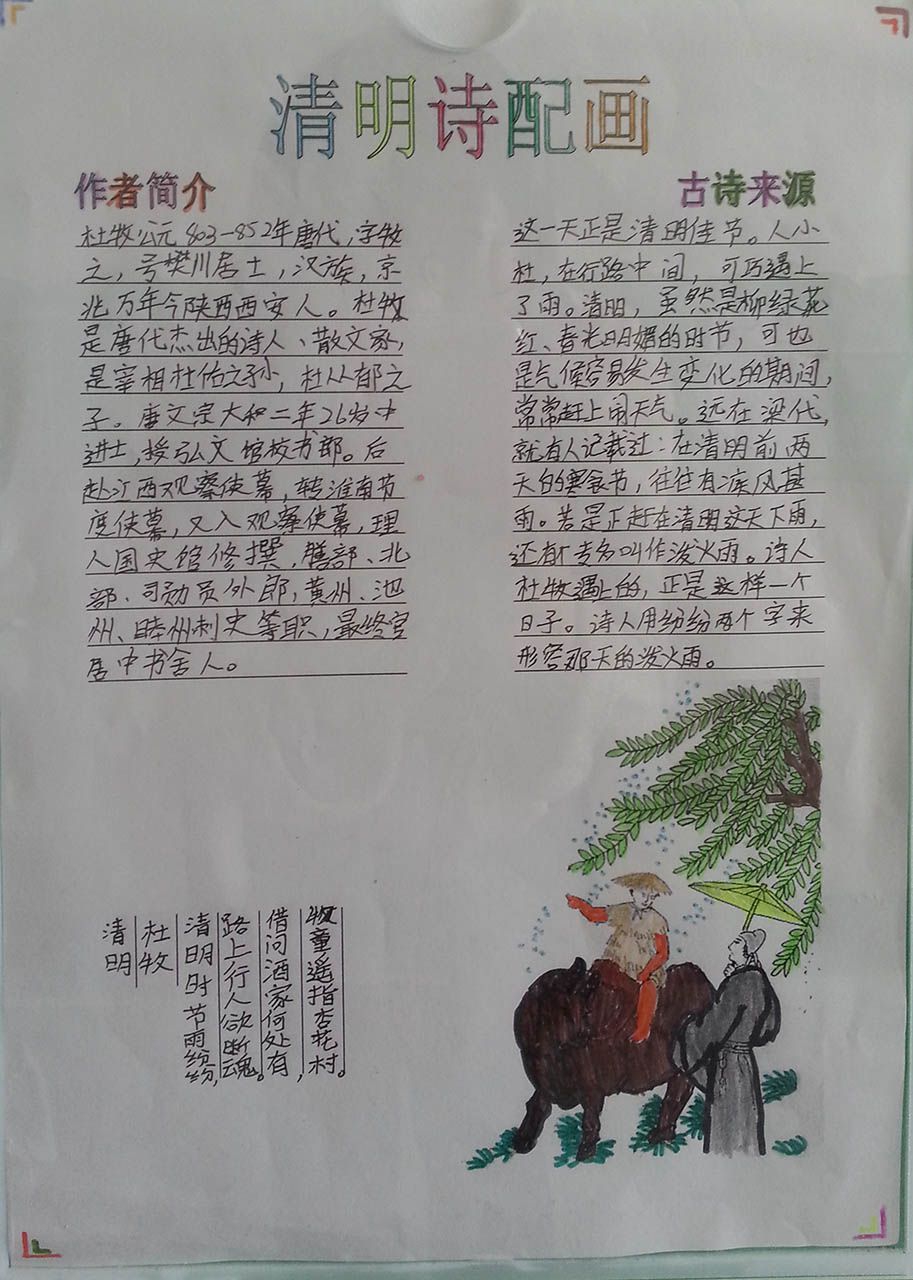 清明诗配画
作者简介
杜牧公元803-852年唐代，字牧
之，号樊川居士，汉族，京
兆万年今陕西西安人。杜牧
是唐代杰出的诗人、散文家，
是宰相杜佑之孙，杜从郁之
子。唐文宗大和二年26岁中
进士，授弘文馆校书郎。后
赴江西观察使幕，转淮南节
度使幕，又入观察使幕，理
人国史馆修撰，膳部、北
部、司勋员外郎，黄州、池
州、睦州刺史等职，最终官
居中书舍人。
古诗来源
这一天正是清明佳节。人小
杜，在行路中间，可巧遇上
了雨。清明，虽然是柳绿花
红、春光明媚的时节，可也
是气候容易发生变化的期间，
常常赶上闹天气。远在梁代，
就有人记载过：在清明前两
天的寒食节，往往有疾风甚
雨。若是正赶在清明这天下雨，
还有个专名叫作泼火雨。诗人
杜牧遇上的，正是这样一个
日子。诗人用纷纷两个字来
形容那天的泼火雨。
清明
杜牧
清明时节雨纷纷，
路上行人欲断魂。
借问酒家何处有，
牧童遥指杏花村。